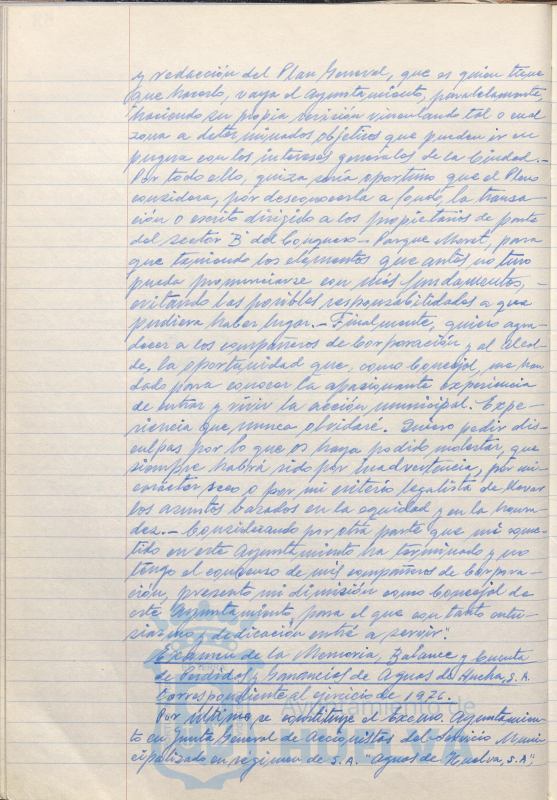 y redacción del Plan General, que es quien tiene
que hacerlo, vaya el Ayuntamiento, paralelamente,
haciendo su propia revisión vinculando tal o cual
zona a determinados objetivos que pueden ir en
pugna con los intereses generales de la Ciudad.-
Por todo ello, quizá sería oportuno que el Pleno
considera, por desconocerla a fondo, la transa-
ción o escrito dirigido a los propietarios de parte
del sector B del Conquero - Parque Moret, para
que teniendo los elementos que antes no tuvo
pueda pronunciarse con más fundamentos, -
evitando las posibles responsabilidades a que
pudiera haber lugar.- Finalmente, quiero agra-
decer a los compañeros de Corporación y al Alcal-
de, la oportunidad que, como Concejal, me han
dado para conocer la apasionante experiencia
de entrar y vivir la acción municipal. Expe-
riencia que nunca olvidaré. Quiero pedir dis-
culpas por lo que os haya podido molestar, que
siempre habrá sido por inadvertencia, por mi
carácter seco o por mi criterio legalista de llevar
los asuntos basados en la equidad y en la honra-
dez.- Considerando por otra parte que mi come-
tido en este Ayuntamiento ha terminado y no
tengo el consenso de mis compañeros de Corpora-
ción, presento mi dimisión como Concejal de
este Ayuntamiento para el que con tanto entu-
siasmo y dedicación entré a servir".
Examen de la Memoria, Balance y Cuenta
de Pérdidas y Ganancias de Aguas de Huelva, S.A.
correspondiente al ejercicio de 1976.
Por último se constituye el Excmo. Ayuntamien-
to en Junta General de Accionistas del Servicio Muni-
cipalizado en régimen de S.A. "Aguas de Huelva, S.A.",
Ayuntamiento de
HUELVA